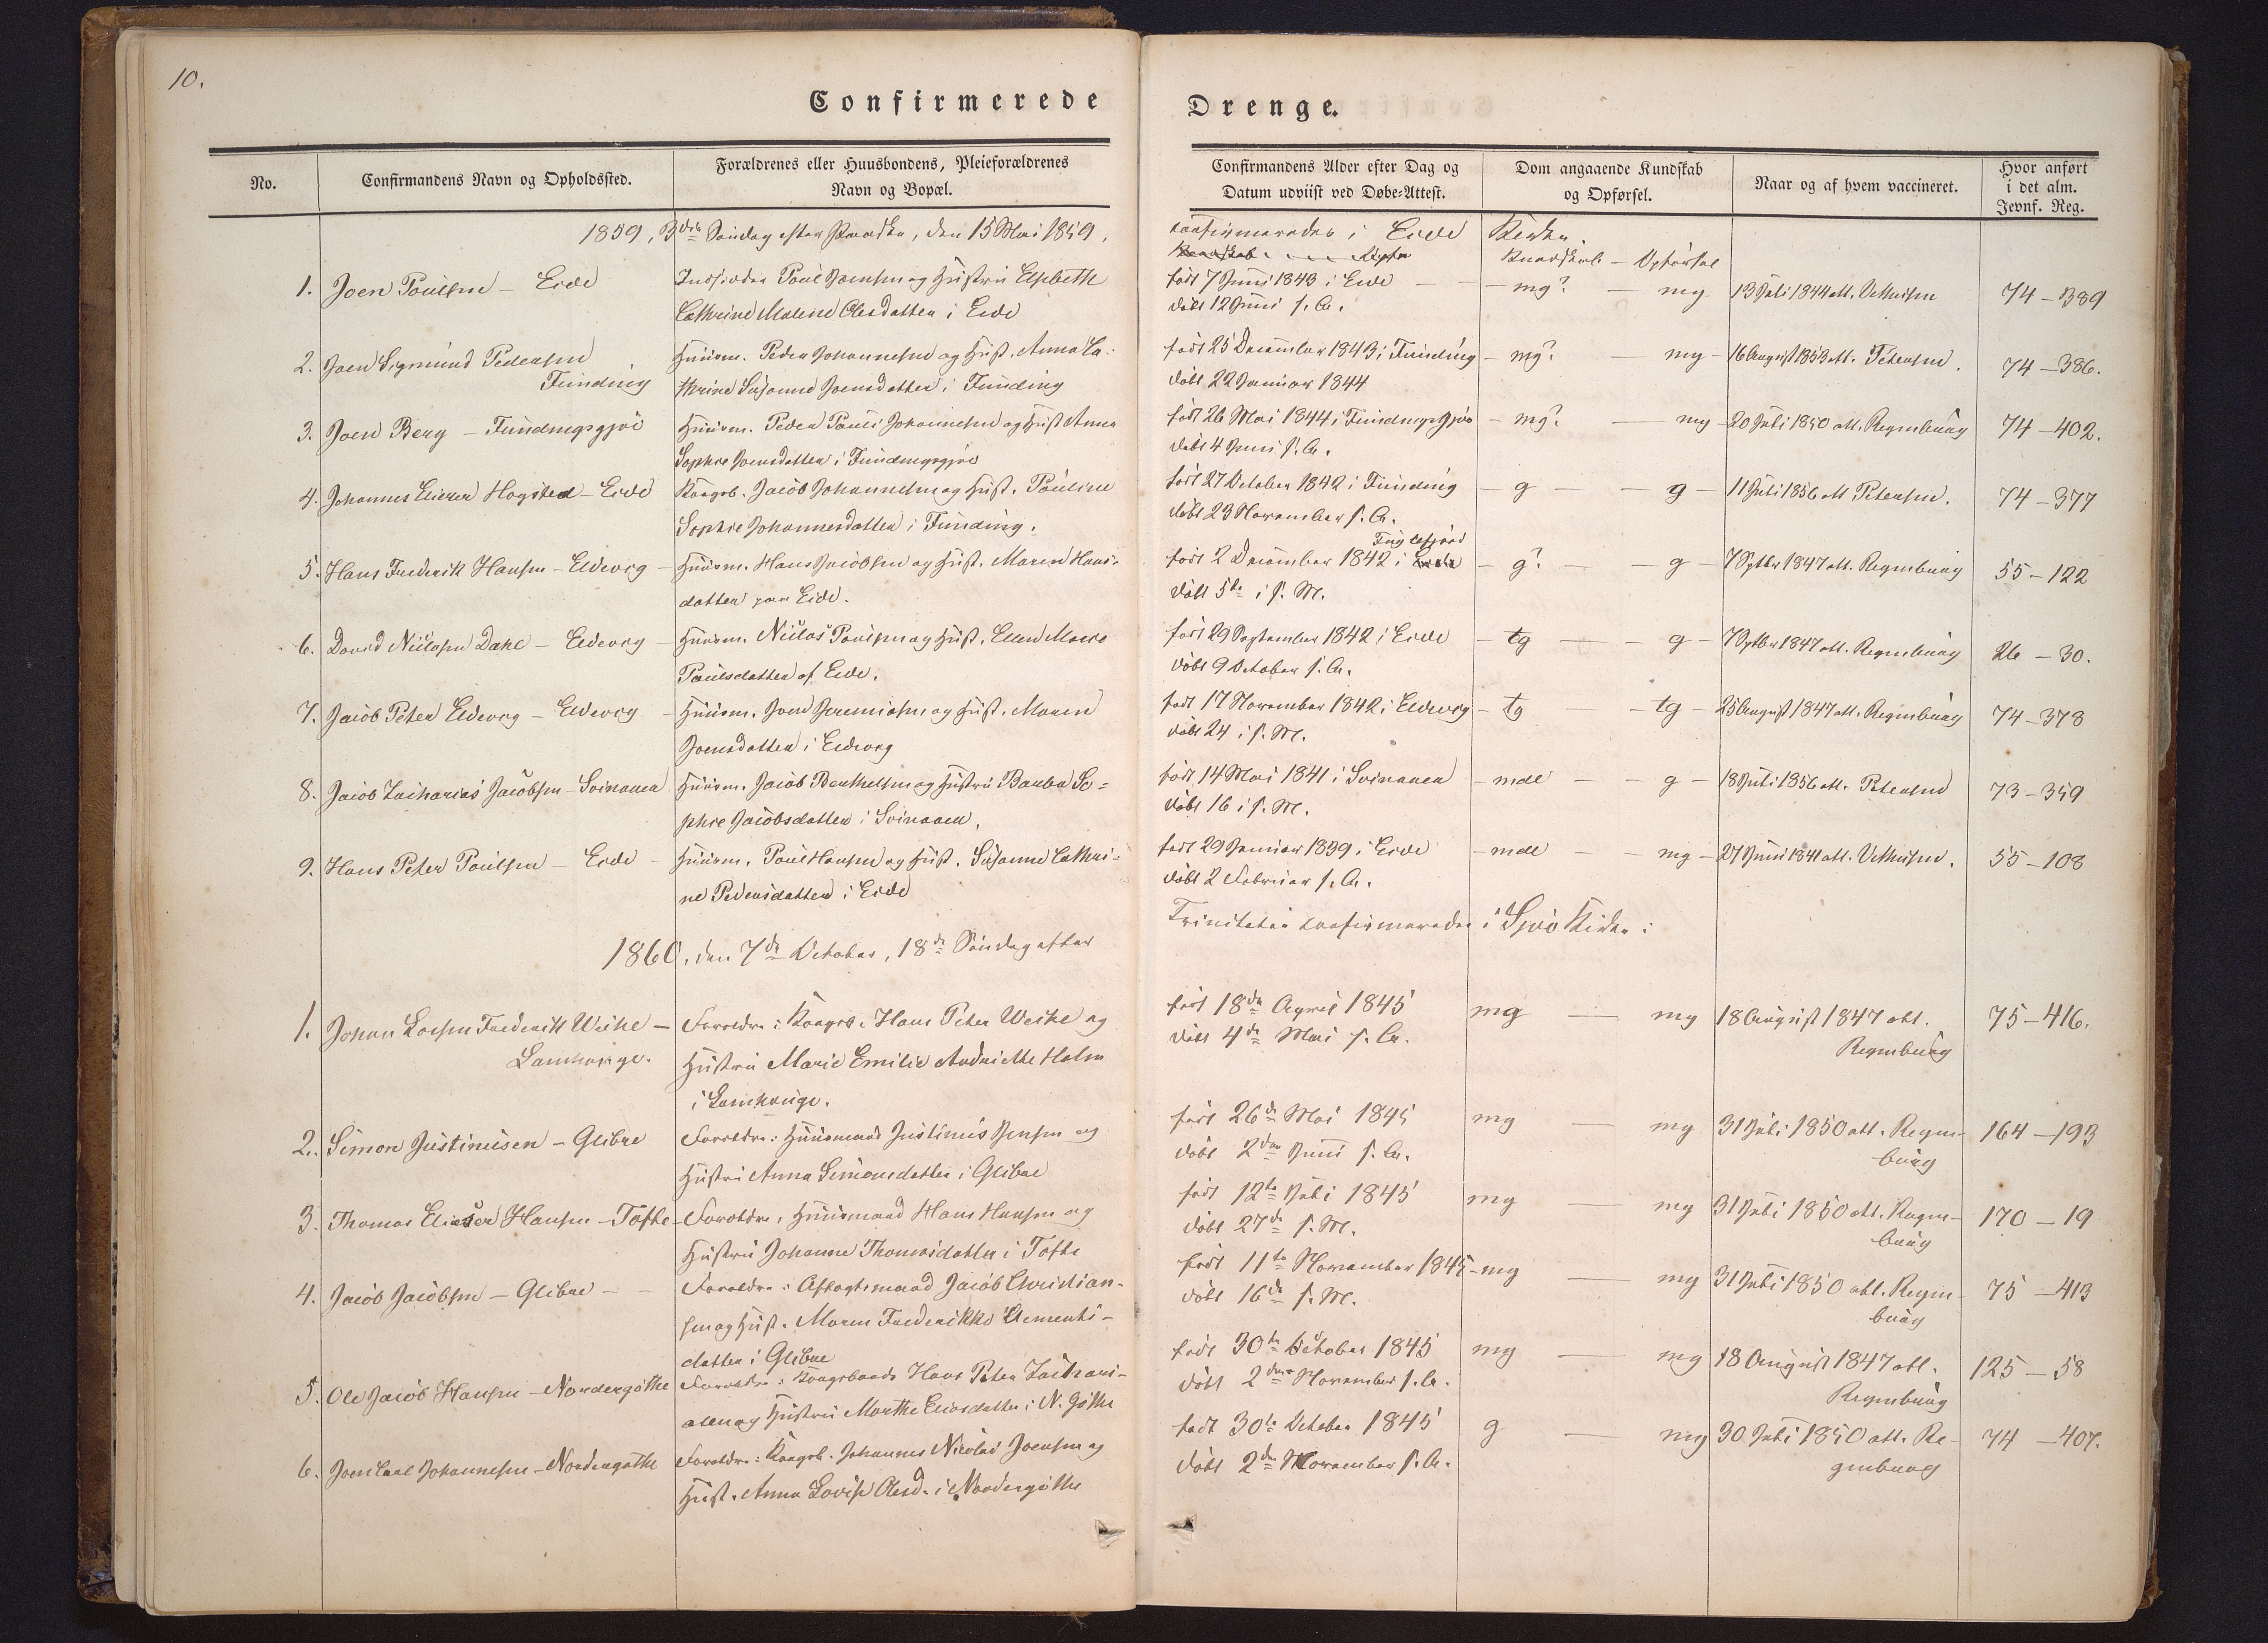 10.
Confirmerede Drenge.
No.
Confirmandens Navn og Opholdssted.
Forældrenes eller Huusbondens, Pleieforældrenes
Navn og Bopæl.
Confirmandens Alder efter Dag og
Datum udviist ved Døbe-Attest.
Dom angaaende Kundskab
og Opførsel.
Naar og af hvem vaccineret.
Hvor anført
i det alm.
Jevnf. Reg.
1859, 3die Søndag efter Paaske, den 15 Mai 1859, confirmerede i Eide Kirke.
Kundskab - Opførsel
1. Joen Poulsen - Eide
Poul Joensen og Hustru Elsebeth
Cathrine Malene Olesdatter i Eide
født 7 Juni 1843 i Eide
døbt 12 Juni s. A.
mg? - mg
13 Juli 1844 att.
74-389
2. Joen Sigmund Pedersen
Funding
Huusm. Peder Johannesen og Hust. Anna Ca-
thrine Susanne Joensdatter i Funding
født 25 December 1843 i Funding
døbt 22 Januar 1844
mg? - mg
16 August 1853 att. Petersen.
74-386.
3. Joen Berg - Fundingsgjov
Huusm. Peder Pauli Johannesen og Hust Anna
Sophie Joensdatter i Fundingsgjov
født 26 Mai 1844 i Fundingsgjov
døbt 4 Juni s. A.
mg? - mg
20 Juli 1850 att. Regenburg
74-402.
4. Johannes Elieser Hogsted - Eide
Kongsb. Jacob Johannesen og Hust. Pouline
Sophie Johannesdatter i Funding.
født 27 October 1842 i Funding
døbt 23 November s. A.
g - g
11 Juli 1856 att Petersen.
74-377
5. Hans Frederik Hansen - Eldevig
Huusm. Hans Jacobsen og Hust. Maren Hans-
datter paa Eide.
Fuglefjord
født 2 December 1842 i Eide
døbt 5te i s. M.
g? - g
7 Septbr 1847 att. Regenburg
55-122
6. David Niclasen Dahl - Eldevig
Huusm. Niclas Poulsen og Hust. Ellen Marie
Poulsdatter af Eide.
født 29 September 1842 i Eide
døbt 9 October s. A.
tg - g
7 Septbr 1847 att. Regenburg
26-30.
7. Jacob Peter Eldevig - Eldevig
Huusm. Joen Jeremiasen og Hust. Maren
Joensdatter i Eldevig
født 17 November 1842 i Eldevig
døbt 24 i s. M.
tg - tg
25 August 1847 att. Regenburg
74-378
8. Jacob Zacharias Jacobsen - Svinaaen
Huusm. Jacob Berthelsen og Hustru Barbra So-
phie Jacobsdatter i Svinaaen.
født 14 Mai 1841 i Svinaaen
døbt 16 i s. M.
mdl - g
18 Juli 1856 att. Petersen
73-359
9. Hans Peter Poulsen - Eide
Huusm. Poul Hansen og Hust. Susanne Cathri-
ne Pedersdatter i Eide
født 29 Januar 1839 i Eide
døbt 2 Februar s. A.
mdl - mg
27 Juni 1841 att.
55-108
1860, den 7de October, 18de Søndag efter Trinitatis confirmerede i Gjov Kirke:
1. Johan Frederik Weihe -
Lamhauge.
Forældre: Kongsb. Hans Peter Weihe og
Hustru Marie Emilie Andriette Holm
i Lamhauge.
født 18de April 1845
døbt 4de Mai s. A.
mg - mg
18 August 1847 att.
Regenburg
75-416.
2. Simon Justinusen - Glibre
Forældre: Huusmand Justinus Jensen og
Hustru Anna Simonsdatter i Glibre
født 26de Mai 1845
døbt 2den Juni s. A.
mg - mg
31 Juli 1850 att. Regen-
burg
164-193
3. Thomas Elieser Hansen - Tofte
Forældre: Huusmand Hans Hansen og
Hustru Johanne Thomasdatter i Tofte
født 12te Juli 1845
døbt 27de s. M.
mg - mg
31 Juli 1850 att. Regen-
burg
170-19
4. Jacob Jacobsen - Glibre
Forældre: Aftagtsmand Jacob Christian-
sen og Hust. Maren Frederikke Clements-
datter i Glibre
født 11te November 1845
døbt 16de s. M.
mg - mg
31 Juli 1850 att. Regen-
burg
75-413
5. Ole Jacob Hansen - Nordregøthe
Forældre: Kongsbonde Hans Peter Zachari-
asen og Hustru Marthe Eliasdatter i N. Gøthe
født 30te October 1845
døbt 2den November s. A.
mg - mg
18 August 1847 att.
Regenburg
125-58
6. Joen Carl Johannesen - Nordregøthe
Forældre: Kongsb. Johannes Nicolai Joensen og
Hust. Anna Lovise Olesd. i Nordregøthe
født 30te October 1845
døbt 2den November s. A.
g - mg
30 Juli 1850 att. Re-
genburg
74-407.